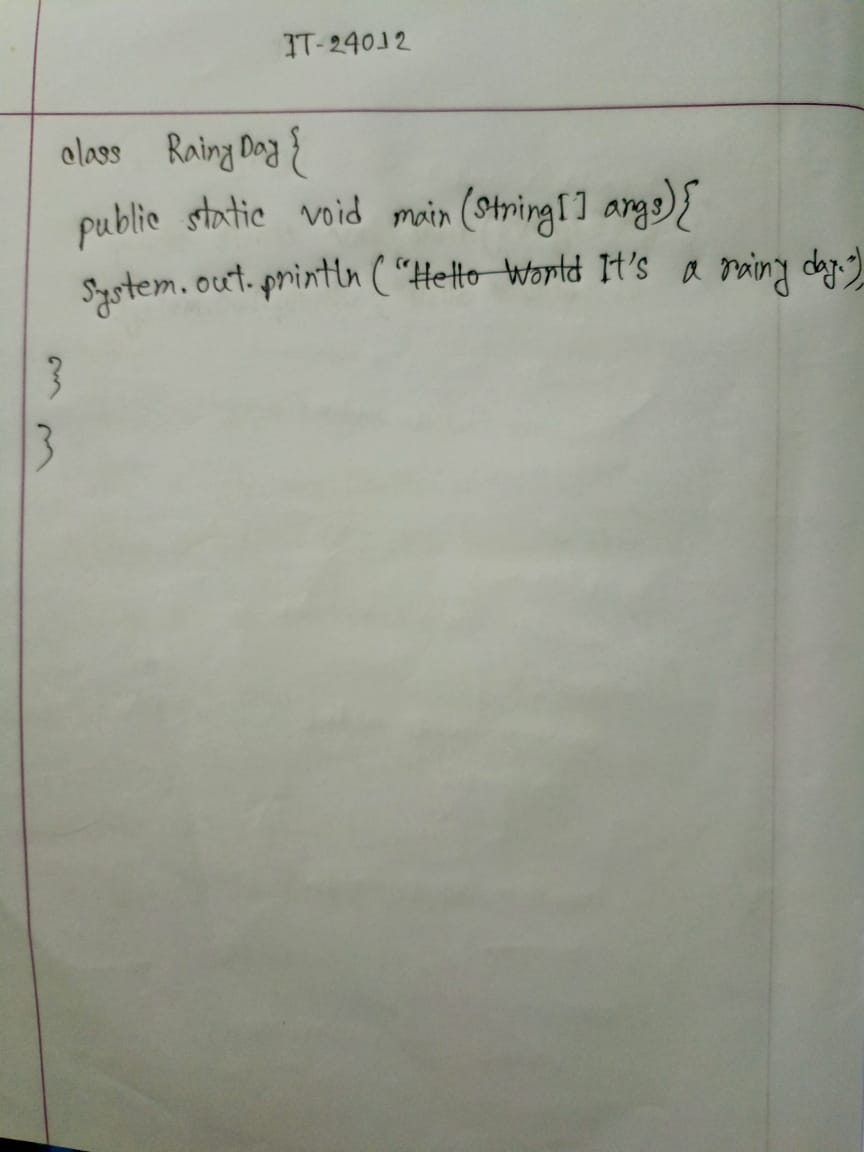 IT-24012
class RainyDay{
public static void main(String[] args){
System.out.println("Hello World It's a rainy day.");
}
}